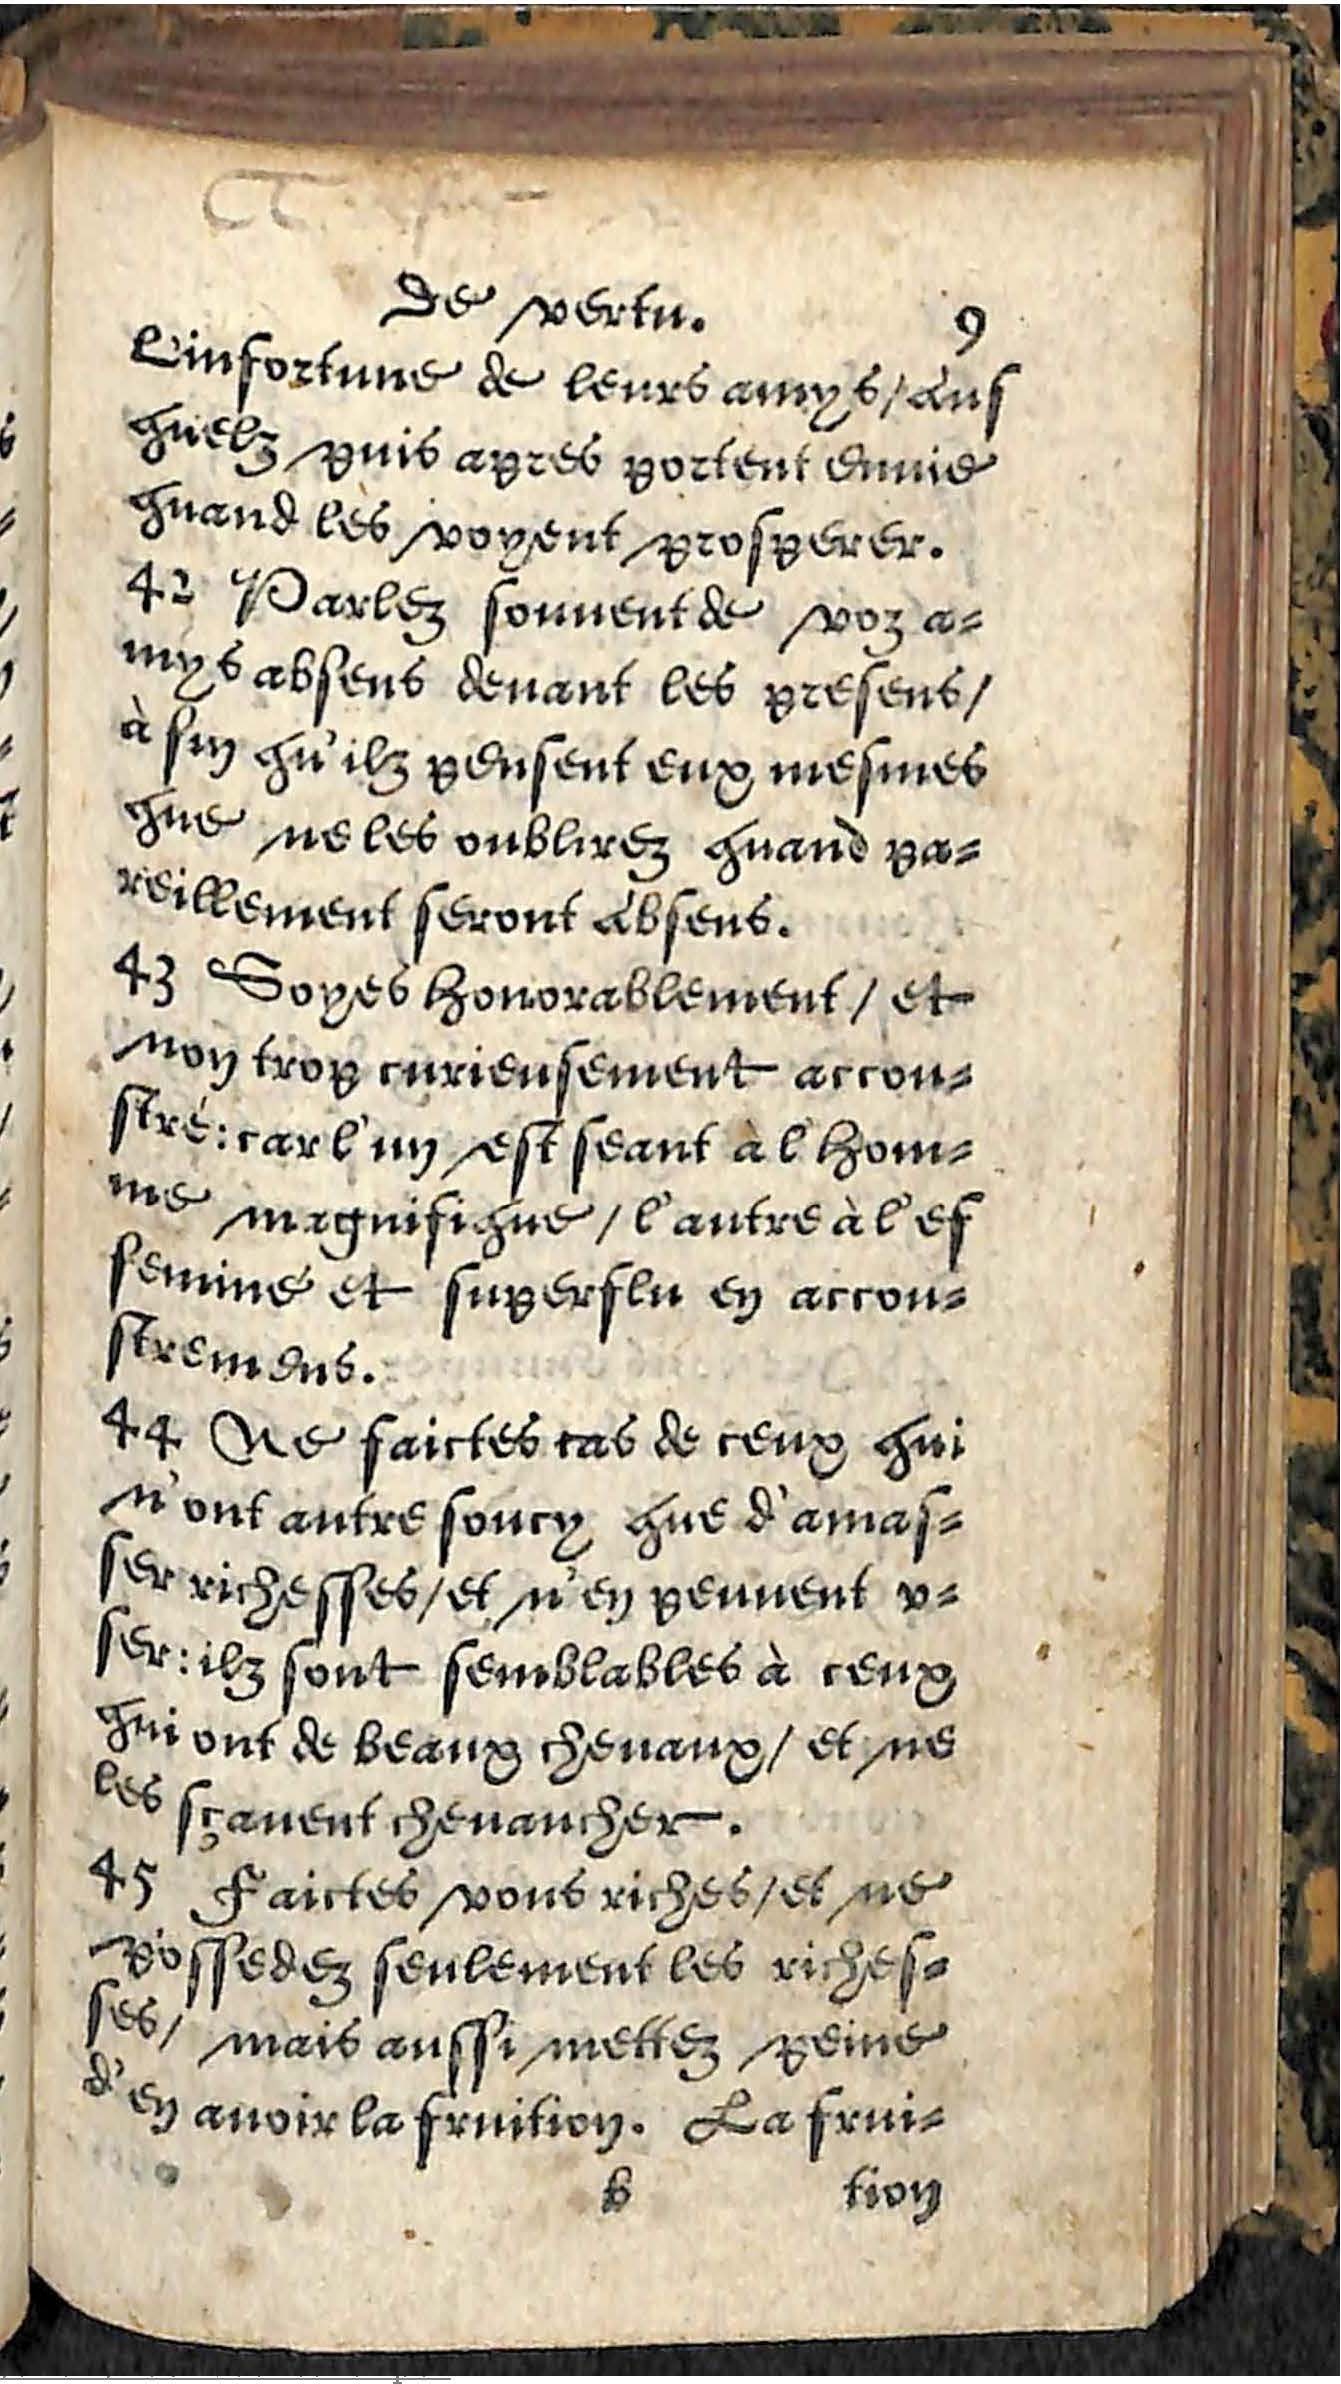 De vertu. 9
L'infortune de leurs amys/ aus
quelz puis apres portent enuie
quand les voyent prosperer.
42 Parlez souuent de voz a=
mys absens deuant les presens/
à fin qu'ilz pensent eux mesmes
que ne les oublirez quand pa=
reillement seront absens.
43 Soyés honorablement/ et
non trop curieusement accou=
stré: car l'un est seant à l'hom=
me magnifique/ l'autre à l'ef
feminé et superflu en accou=
stremens.
44 Ne faictes cas de ceux qui
n'ont autre soucy que d'amas=
ser richesses/ et n'en peuuent v=
ser: ilz sont semblables à ceux
qui ont de beaux cheuaux/ et ne
les sçauent cheuaucher.
45 Faictes vous riches/ et ne
possedez seulement les riches=
ses/ mais aussi mettez peine
d'en auoir la fruition. La frui=
b tion